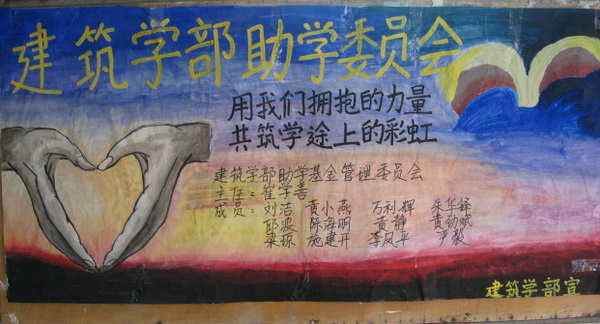 建筑学部助学委员会
用我们拥抱的力量
共筑学途上的彩虹
建筑学部助学基金管理委员会
主任：崔学善
成员：刘洁 黄小燕 万利辉 朱华锋
邱波 陈海明 黄静 袁劲斌
梁琼 施建开 李凤平 尹毅
建筑学部宣